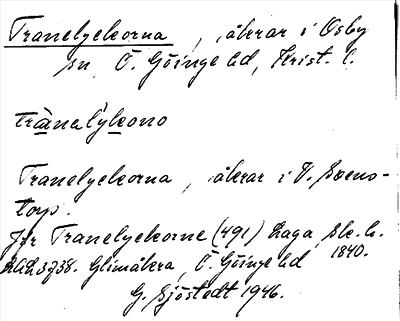 Tranelyckorna, åkrar i Osby
sn Ö. Göinge hd, Krist. l.
tränalykono
Tranelyckorna, åkrar i V. Svens-
torp.
Jfr Tranelyckorne (491) Laga sk. h.
1840.
Glimåkra, Ö. Göinge hd
G. Sjöstedt 1946.